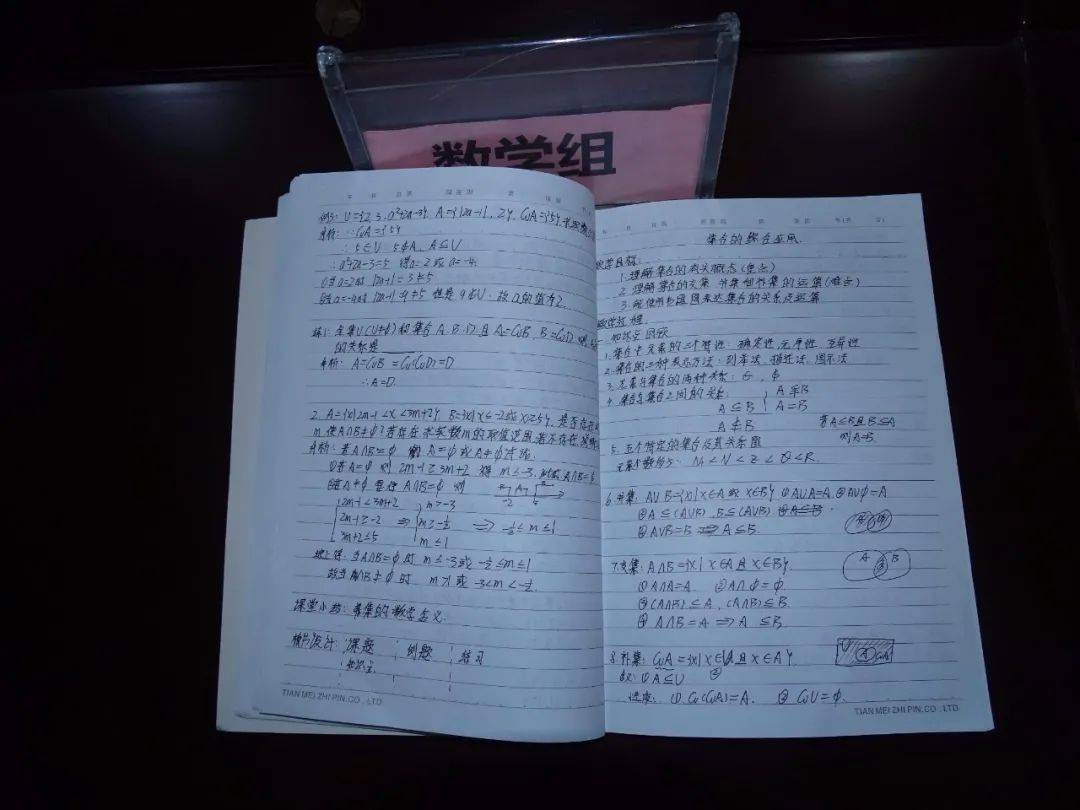 数学组
例3: U={2, 3, a²+2a-3}, A={|2a-1|, 2}, CuA={5},
解析: ∵CuA={5}
∴5∈U 5∉A, A⊆U
∴a²+2a-3=5 得a=2或a=-4.
①当a=2时 |2a-1|=3≠5
②当a=-4时 |2a-1|=9≠5 但是9∉U. 故a的值为2.
练1: 全集U(U≠φ)和集合A.B.D.且A=CuB, B=CuD,
的关系是
解析: A=CuB=Cu(CuD)=D
∴A=D.
2. A={x|2m-1<x<3m+2} B={x|x≤-2或x≥5}, 是否存在
m使A∩B≠φ?若存在求实数m的取值范围,若不存在
解析: 若A∩B=φ 则A=φ或A≠φ
①若A=φ 则 2m-1≥3m+2 得 m≤-3. A∩B=φ
②若A≠φ 要使A∩B=φ 则
-2 5
2m-1<3m+2 m>-3
2m-1≥-2 ⇒ m≥-½ ⇒ -½≤m≤1
3m+2≤5 m≤1
综上得: 当A∩B=φ时 m≤-3或-½≤m≤1
故当A∩B≠φ时 m>1或-3<m<-½.
课堂小结: 的数学含义.
板书设计: 课题 例题 练习
知识点
TIAN MEI ZHI PIN.CO .LTD
集合的综合应用.
教学目标:
1. 理解集合的有关概念(重点)
2. 理解集合的交集 并集和补集的运算(难点)
3. 能使用韦恩图表达集合的关系及运算
教学过程:
一. 知识点回顾
1. 集合中元素的三个特性: 确定性,无序性 互异性
2. 集合的三种表示方法: 列举法, 描述法, 图示法
3. 元素与集合的两种关系: ∈, ∉
4. 集合与集合之间的关系: A⊆B A⫋B A=B
A⊈B 若A⊆B且B⊆A
则A=B.
5. 五个特定的集合及其关系图
N+<N<Z<Q<R.
6. 并集: A∪B={x|x∈A或x∈B} ①A∪A=A. ②A∪φ=A
③A⊆(A∪B), B⊆(A∪B)
④A∪B=B⇒A⊆B.
7. 交集: A∩B={x|x∈A且x∈B} A B
①A∩A=A ②A∩φ=φ
③(A∩B)⊆A, (A∩B)⊆B.
④A∩B=A⇒A⊆B.
8. 补集: CuA={x|x∈U且x∉A} U A CuA
①A⊆U ②
性质: ①Cu(CuA)=A. ②CuU=φ.
TIAN MEI ZHI PIN.CO .LTD